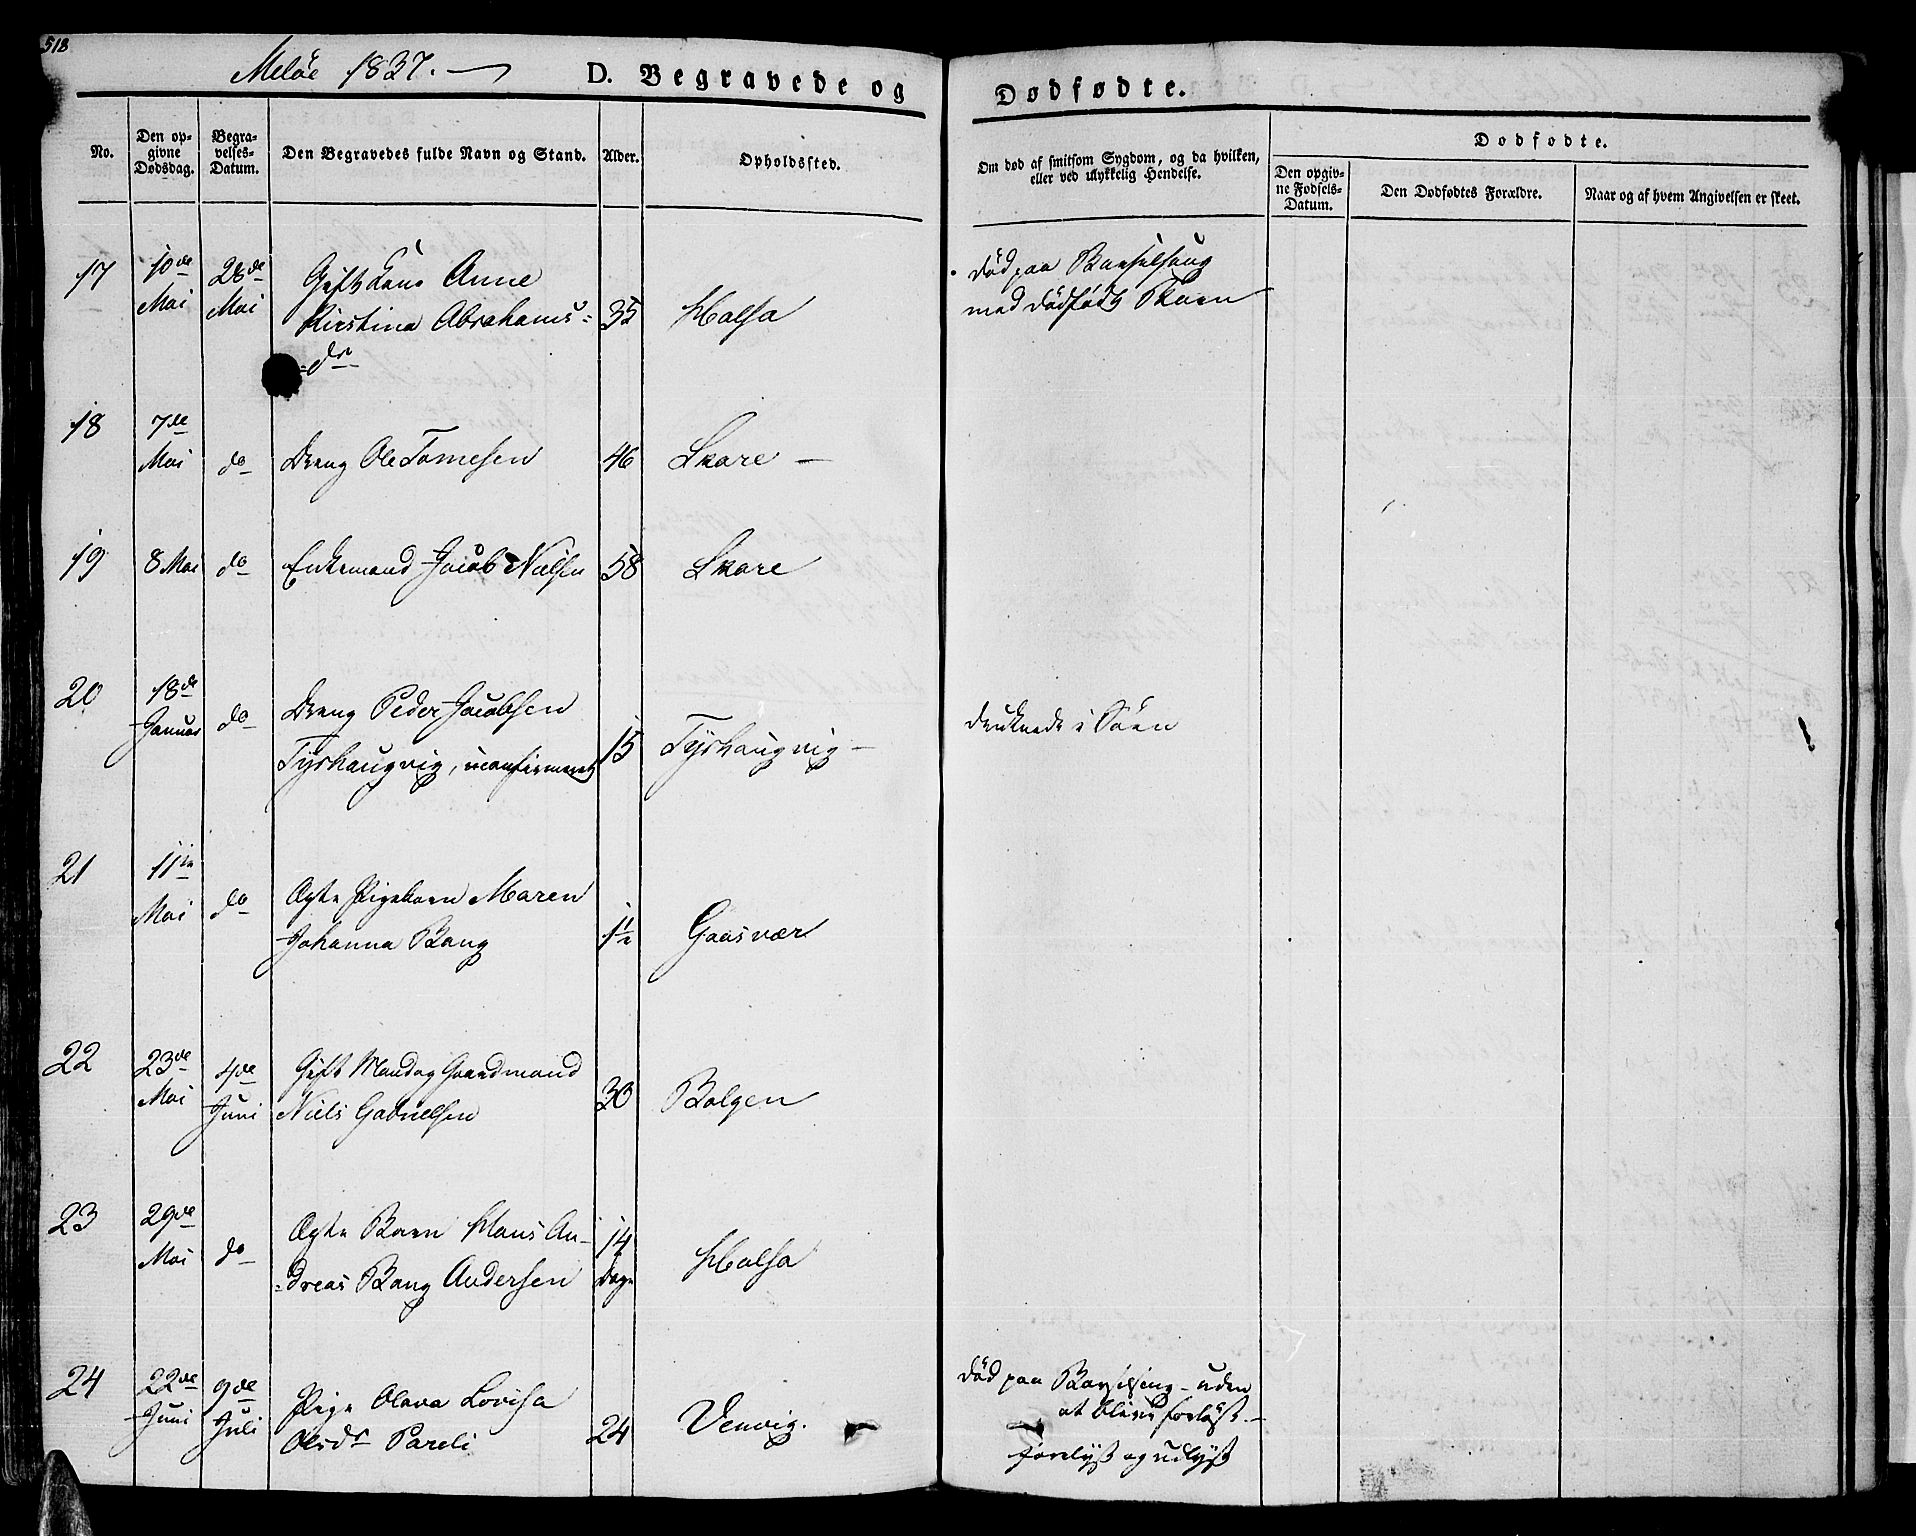 518
Meløe 1837.
D. Begravede og
Dødfødte.
No.
Den op-
givne
Dødsdag.
Begra-
velses-
Datum.
Den Begravedes fulde Navn og Stand.
Alder.
Opholdssted.
Om død af smitsom Sygdom, og da hvilken,
eller ved ulykkelig Hendelse.
Dødfødte.
Den opgiv-
ne Fødsels-
Datum.
Den Dødfødtes Forældre.
Naar og af hvem Angivelsen er skeet.
17
10de
Mai
28de
Mai
Gift Kone Anne
Kirstina Abrahams-
=dr
35
Halsa
død paa Barselseng
med dødfødt Barn
18
7de
Mai
do
Dreng Ole Tomesen
46
Skare
19
8 Mai
do
Enkemand Jacob Nielsen
58
Skare
20
18de
Januar
do
Dreng Peder Jacobsen
Tyshaugvig, uconfirmeret
15
Tyshaugvig
druknede i Søen
21
11te
Mai
do
Ægte Pigebarn Maren
Johanna Bang
1½
Gaasvær
22
23de
Mai
4de
Juni
Gift Mand og Gaardmand
Niels Gabrielsen
30
Bolgen
23
29de
Mai
do
Ægte Barn Hans An-
=dreas Bang Andersen
14
Dage
Halsa
24
22de
Juni
9de
Juli
Pige Olava Lovisa
Olsdr Pareli
24
Venvig.
død paa Barselseng - uden
at blive forløst.